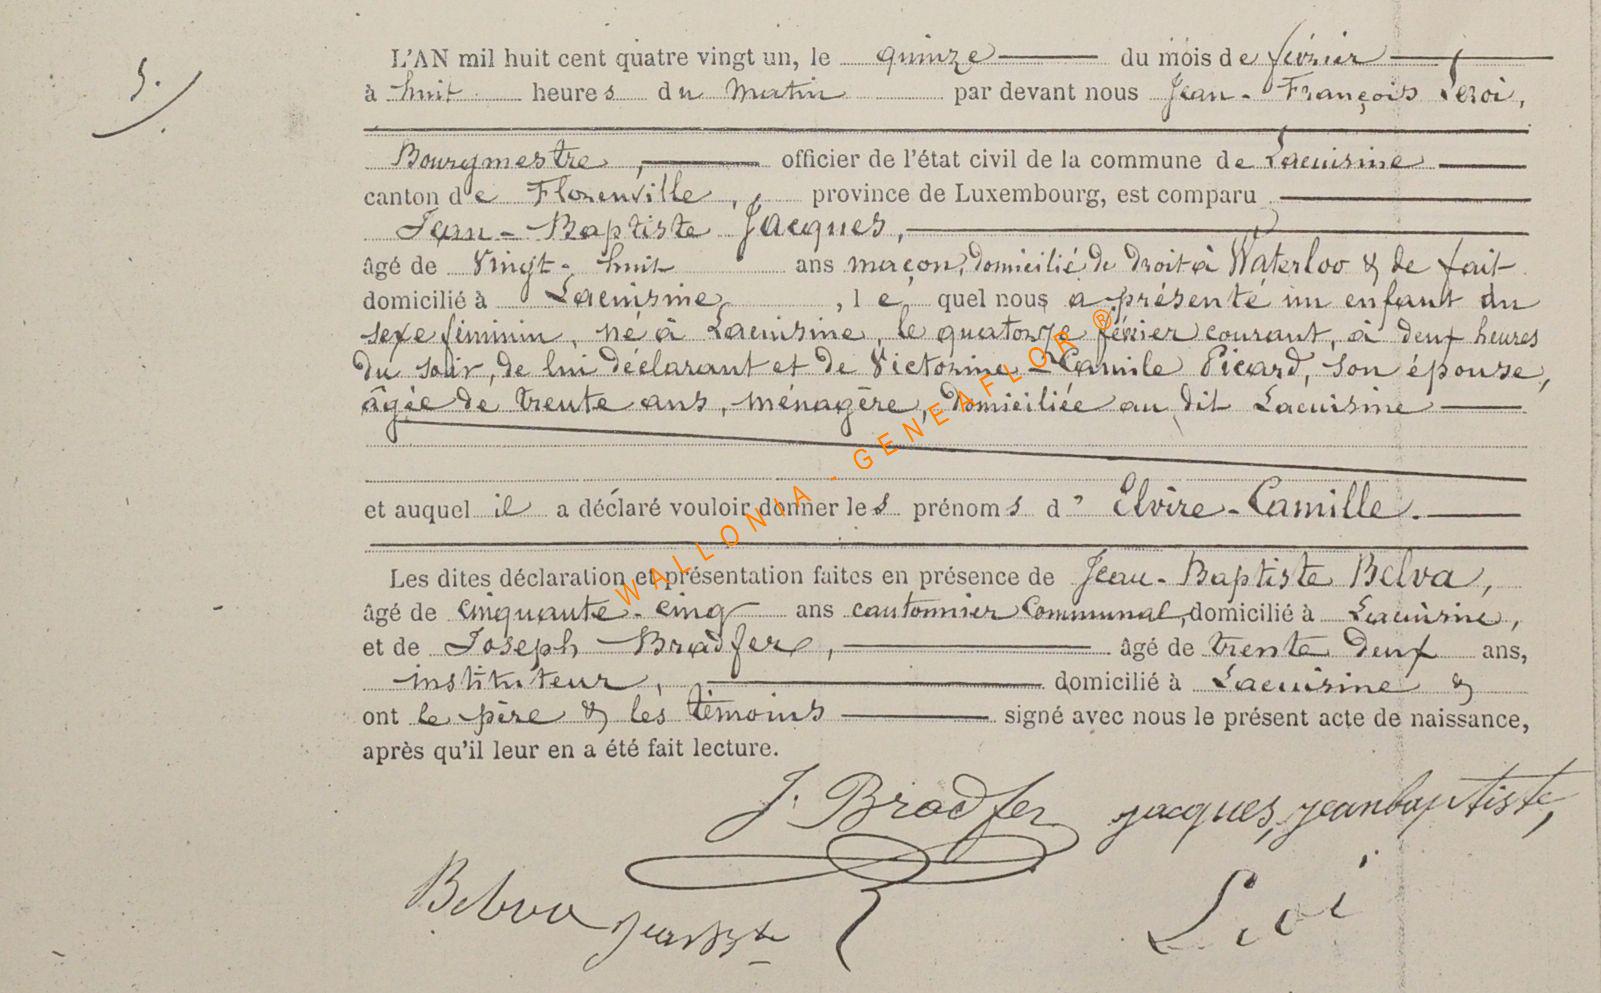 5.
L'AN mil huit cent quatre vingt un, le quinze du mois de février
à huit heures du matin par devant nous Jean-François Leroi,
Bourgmestre, officier de l'état civil de la commune de Lacuisine
canton de Florenville, province de Luxembourg, est comparu
Jean-Baptiste Jacques,
âgé de vingt-huit ans maçon, domicilié de droit à Waterloo & de fait
domicilié à Lacuisine, le quel nous a présenté un enfant du
sexe féminin, né à Lacuisine, le quatorze février courant, à deux heures
du soir, de lui déclarant et de Victorine-Camile Picard, son épouse,
âgée de trente ans, ménagère, domiciliée au dit Lacuisine
et auquel il a déclaré vouloir donner les prénoms d' Elvire-Camille.
Les dites déclaration et présentation faites en présence de Jean-Baptiste Belva,
âgé de cinquante-cinq ans cantonnier communal, domicilié à Lacuisine,
et de Joseph Bradfer, âgé de trente deux ans,
instituteur, domicilié à Lacuisine &
ont le père & les témoins signé avec nous le présent acte de naissance,
après qu'il leur en a été fait lecture.
J. Bradfer jacques, jeanbaptiste,
Belva
Leroi
WALLONIA - GENEAFLOR ®